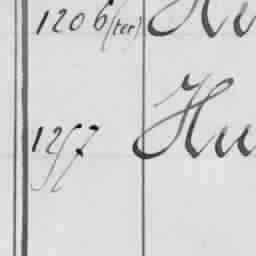 1206 (ter) Hu
1257 Hu